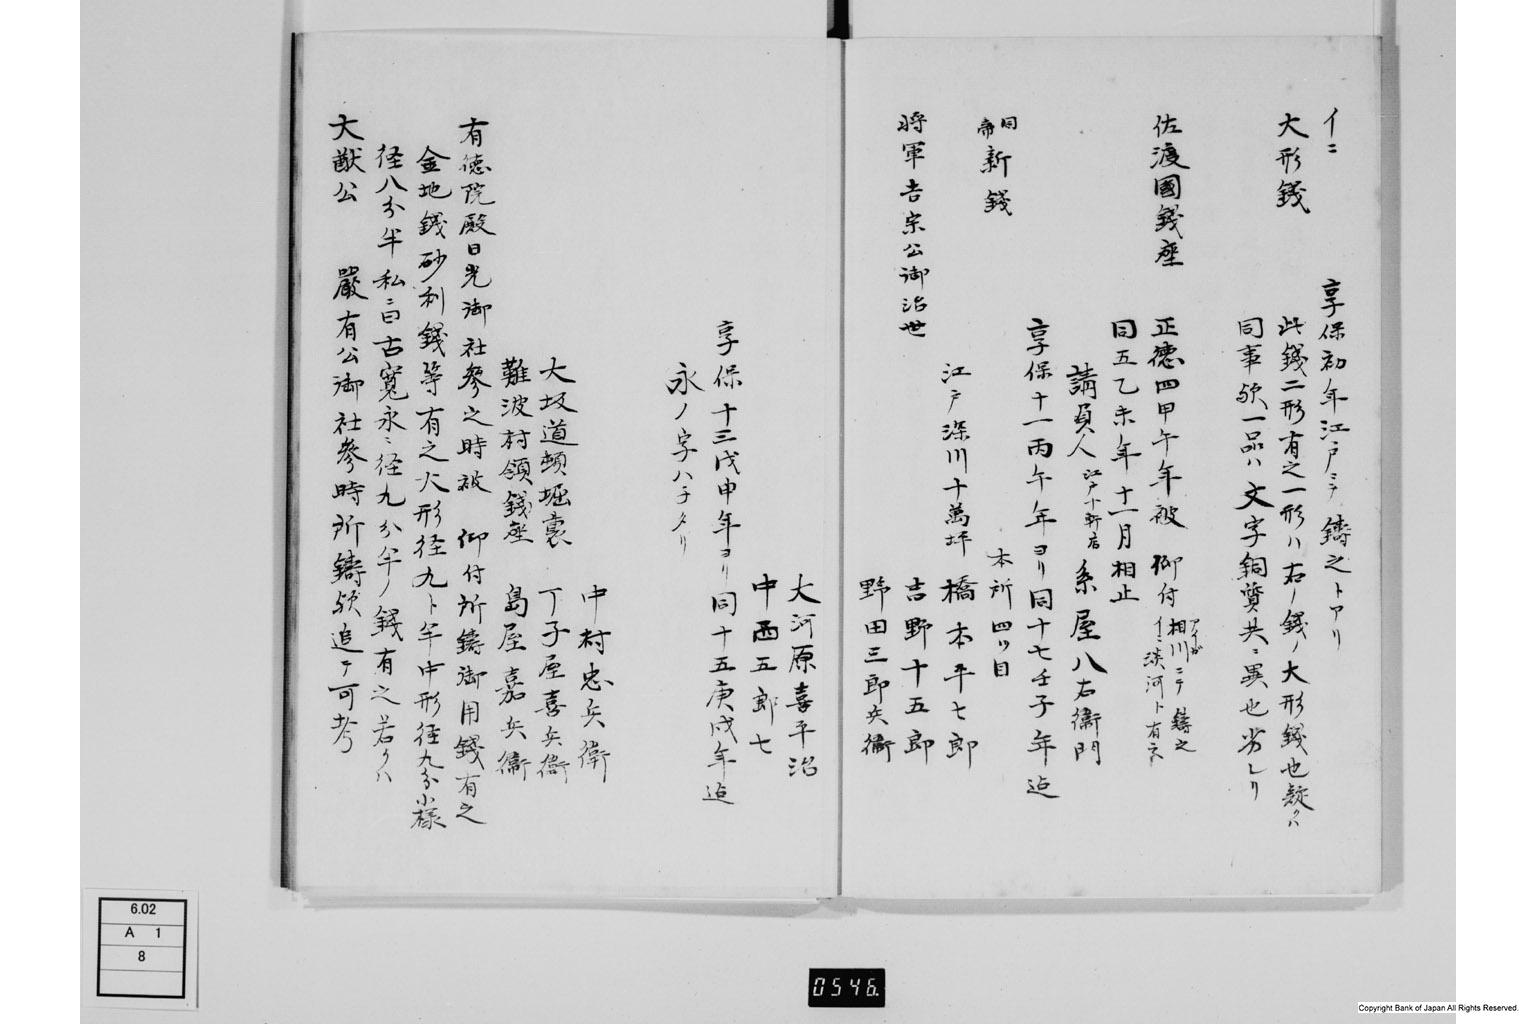 イニ
享保初年江戸ニテ鑄之トアリ
大形錢
此錢二形有之一形ハ右ノ錢ノ大形錢也疑クハ
同事欤一品ハ文字銅質共ニ異也劣レリ
佐渡國錢座
正德四甲午年被 仰付 相川ニテ鑄之
アイガ
イニ淡河ト有之
同五乙未年十一月相止
請負人 江戸十軒店 糸屋八右衞門
享保十一丙午年ヨリ同十七壬子年迠
同帝新錢
本所四ツ目
江戸深川十萬坪 橋本平七郎
将軍吉宗公御治世
吉野十五郎
野田三郎兵衞
大河原喜平治
中西五郎七
享保十三戊申年ヨリ同十五庚戌年迠
永ノ字ハチタリ
中村忠兵衞
大坂道頓堀裏 丁子屋喜兵衞
難波村領錢座 島屋嘉兵衞
有德院殿日光御社參之時被 仰付所鑄御用錢有之
金地錢砂利錢等有之大形径九ト半中形径九分小樣
径八分半私ニ曰古寛永ニ径九分半ノ錢有之若クハ
大猷公 嚴有公御社參時所鑄欤追テ可考
6.02
A 1
8
0546.
Copyright Bank of Japan All Rights Reserved.